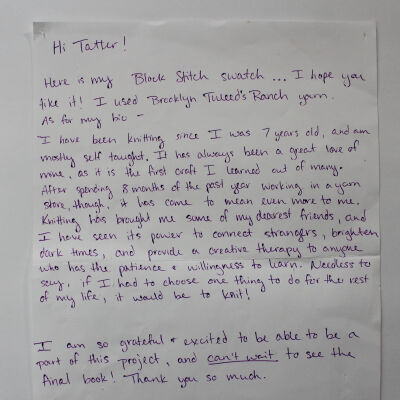 Hi Tatter!
Here is my Block Stitch swatch... I hope you
like it! I used Brooklyn Tweed's Ranch yarn.
As for my bio -
I have been knitting since I was 7 years old, and am
mostly self taught. It has always been a great love of
mine, as it is the first craft I learned out of many.
After spending 8 months of the past year working in a yarn
store, though, it has come to mean even more to me.
Knitting has brought me some of my dearest friends, and
I have seen its power to connect strangers, brighten
dark times, and provide a creative therapy to anyone
who has the patience + willingness to learn. Needless to
say, if I had to choose one thing to do for the rest
of my life, it would be to knit!
I am so grateful + excited to be able to be a
part of this project, and can't wait to see the
final book! Thank you so much.